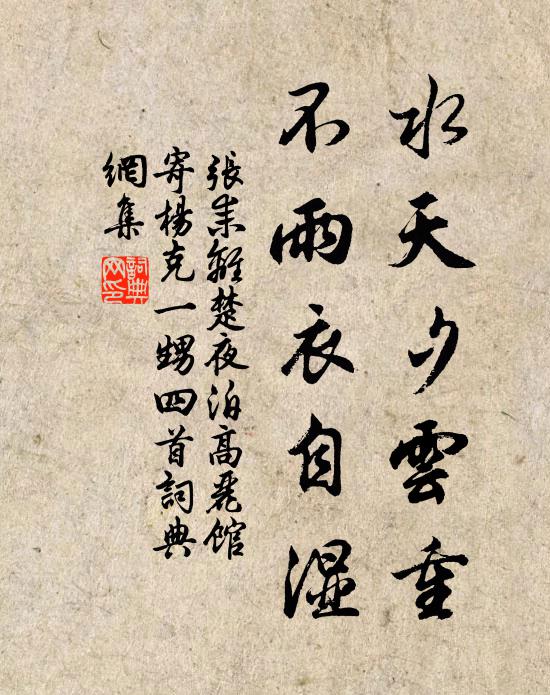 水天夕雲重
不雨衣自濕
張耒離楚夜泊高麗館
寄楊克一甥四首詞典
網集
詞典
网印